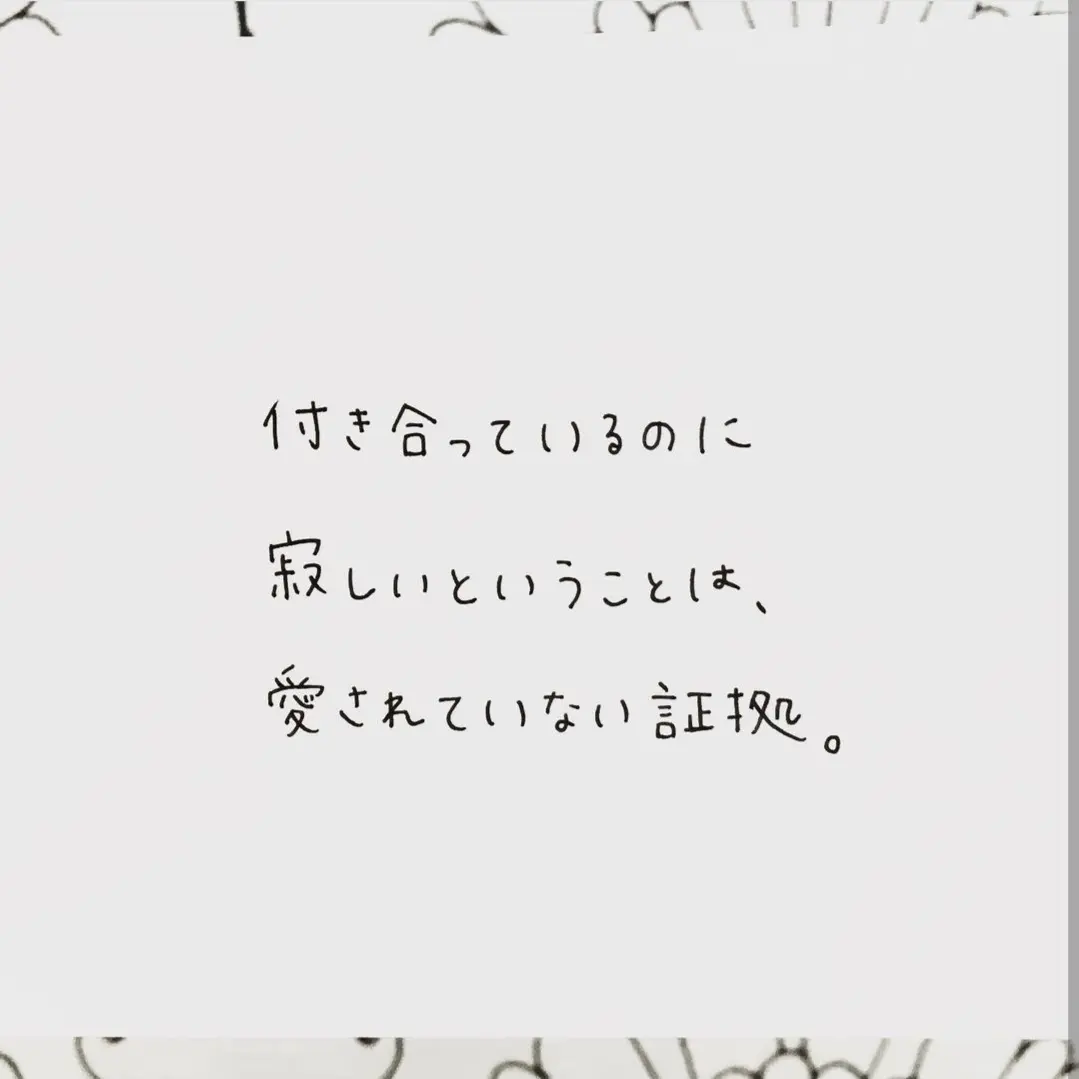 付き合っているのに
寂しいということは、
愛されていない証拠。